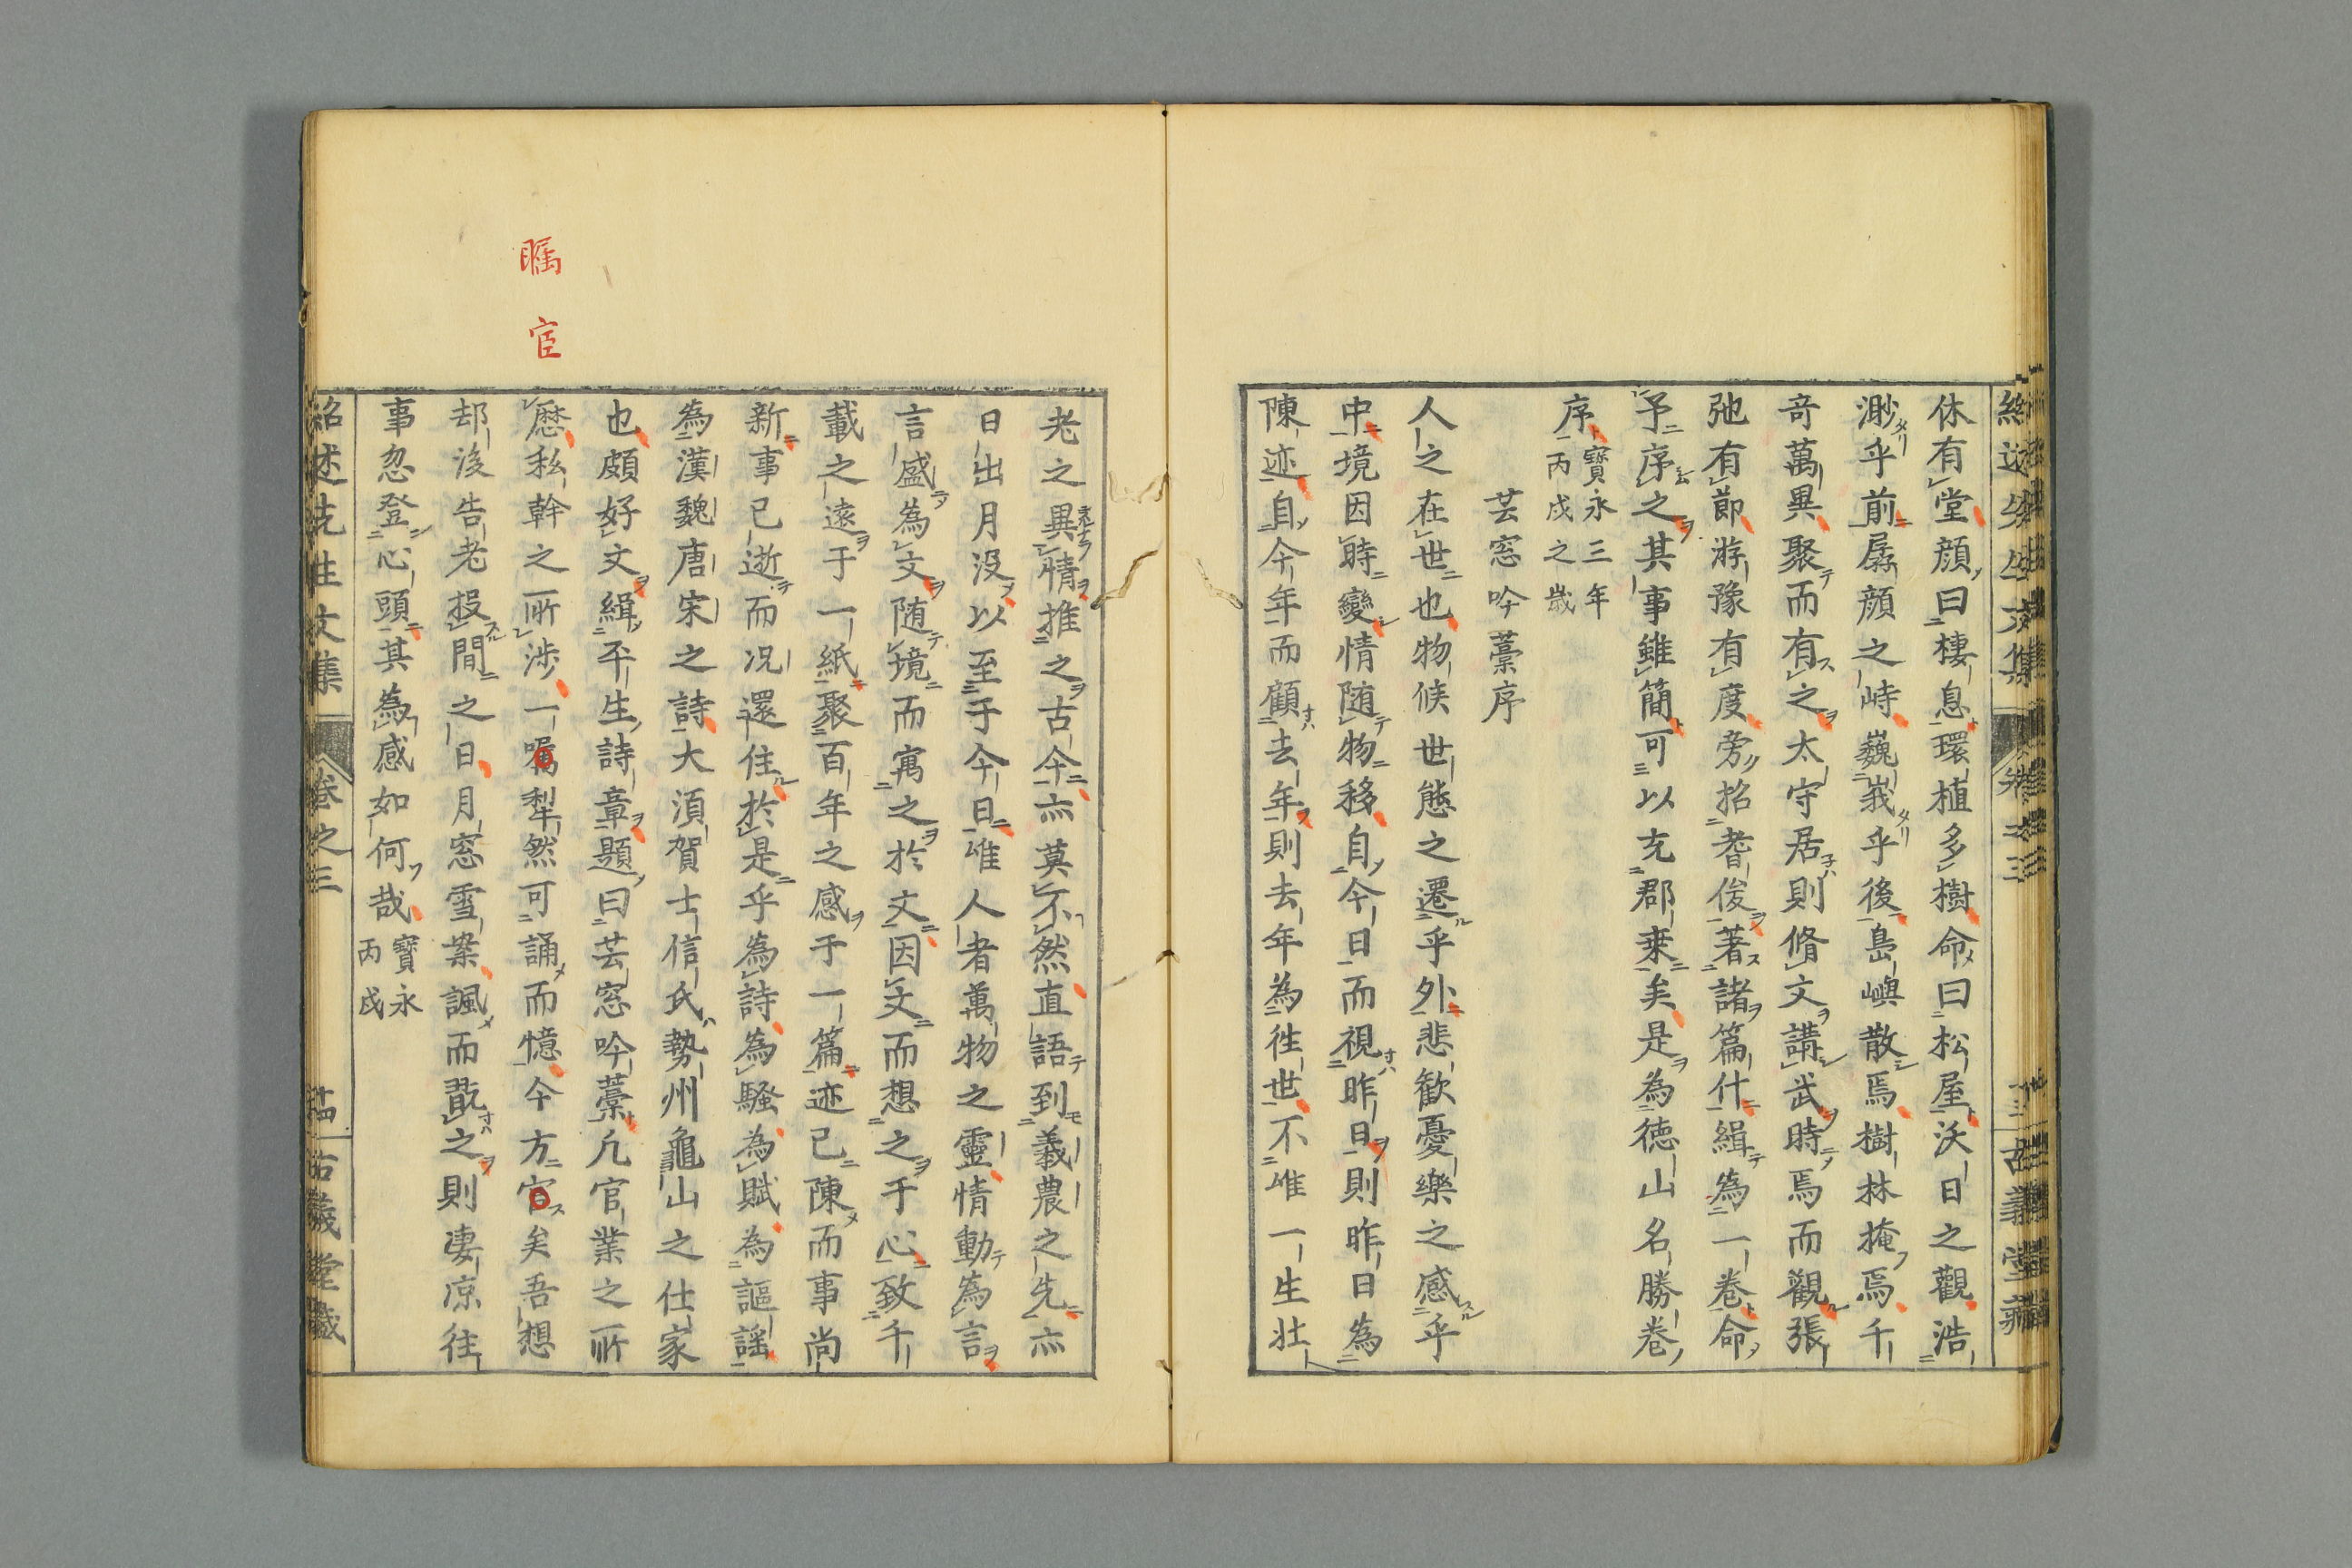 休有堂顔曰棲息環植多樹命曰松屋沃日之觀浩
渺乎前孱顔之峙巍峩乎後島嶼散焉樹林掩焉千
竒萬異聚而有之太守居則脩文講武時焉而觀張
弛有節游豫有度旁招耆俊著諸篇什緝為一卷命
予序之其事雖簡可以充郡乗矣是為徳山名勝卷
序寶永三年丙戌之歲
芸窓吟藁序
人之在世也物候世態之遷乎外悲歓憂樂之感乎
中境因時變情随物移自今日而視昨日則昨日為
陳迹自今年而顧去年則去年為徃世不唯一生壮
老之異情推之古今亦莫不然直語到義農之先亦
日出月没以至于今日唯人者萬物之靈情動為言
言盛為文随境而寓之於文因文而想之于心致千
載之遠于一紙聚百年之感于一篇迹已陳而事尚
新事已逝而况還住於是乎為詩為騷為賦為謳謡
為漢魏唐宋之詩大須賀士信氏勢州龜山之仕家
也頗好文緝平生詩章題曰芸窓吟藁凢官業之所
歴私幹之所渉一囑犁然可誦而憶今方官矣吾想
却後告老投間之日月窓雪案諷而翫之則凄凉往
事忽登心頭其為感如何哉寶永丙戌
紹述先生文集 卷之三 古義堂藏
矚
宦